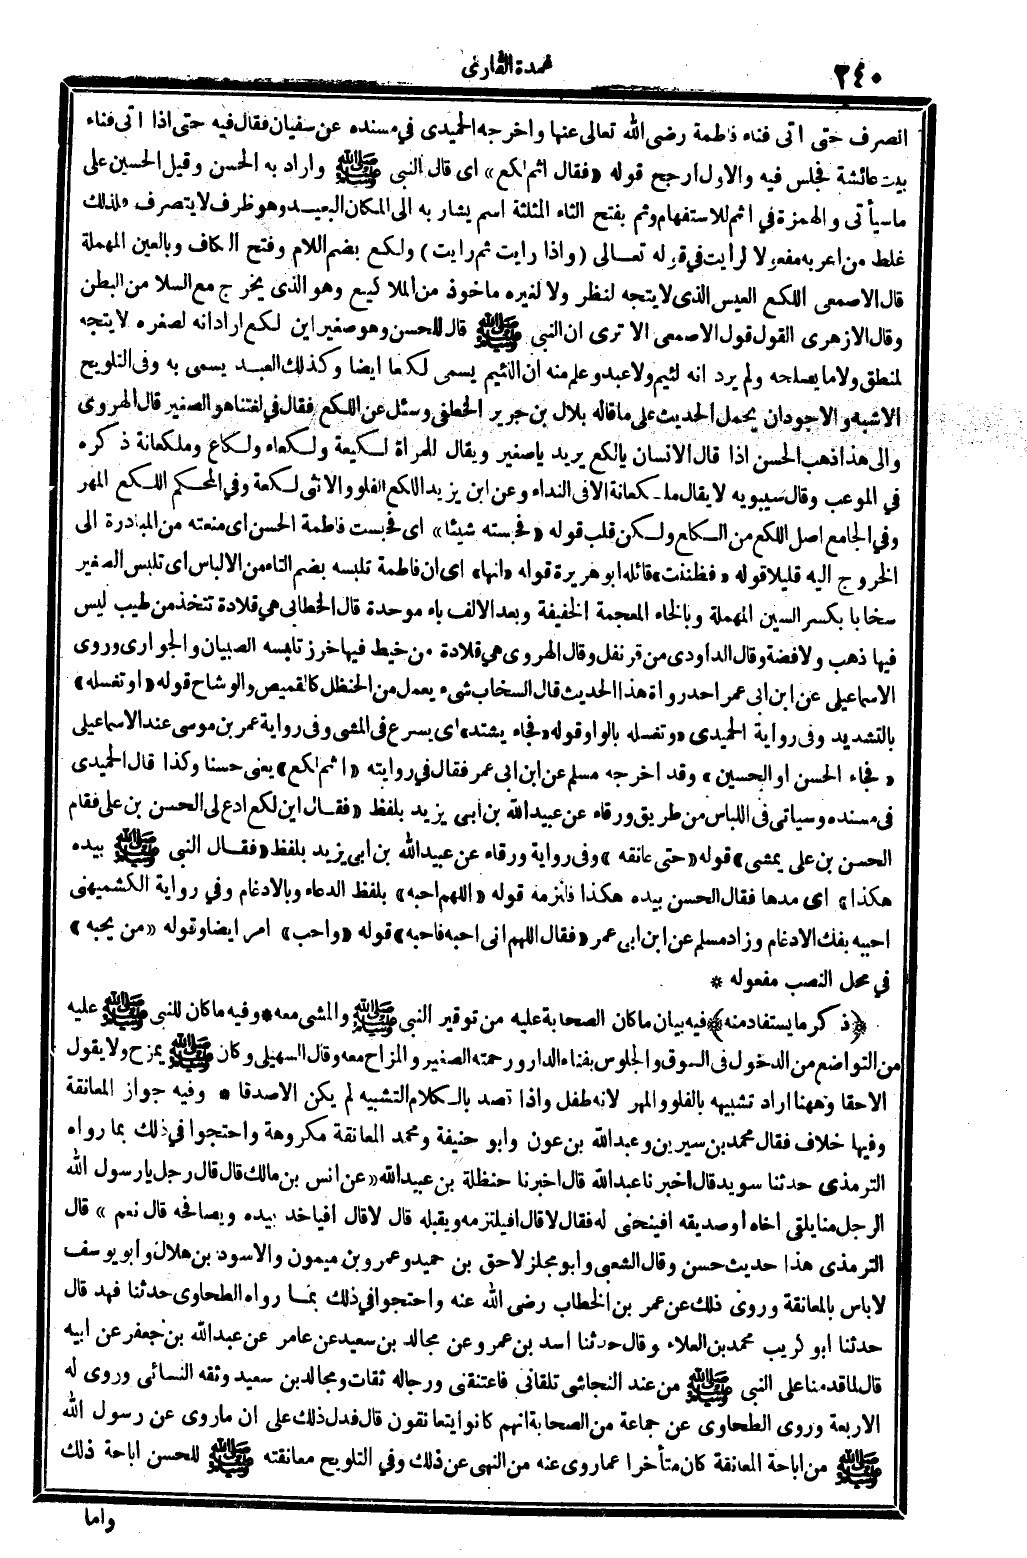 ٢٤٠
عمدة القارئ
انصرف حتى اتى فناء فاطمة رضى الله تعالى عنها واخرجه الحميدى في مسنده عن سفيان فقال فيه حتى اذا اتى فناء
بيت عائشة فجلس فيه والاول ارجح قوله «فقال اثم لكع» اى قال النبى ﷺ واراد به الحسن وقيل الحسين على
ماسيأتى والهمزة في اثم للاستفهام وثم بفتح الثاء المثلثة اسم يشار به الى المكان البعيد وهو ظرف لا يتصرف فلذلك
غلط من اعربه مفعولا لرأيت في قوله تعالى (واذا رايت ثم رايت) ولكع بضم اللام وفتح الكاف وبالعين المهملة
قال الاصمعى اللكع العيس الذى لا يتجه لنظر ولا لغيره ماخوذ من الملاكيع وهو الذى يخرج مع السلا من البطن
وقال الازهرى القول قول الاصمعى الا ترى ان النبى ﷺ قال للحسن وهو صغير اين لكع اراد انه لصغره لا يتجه
لمنطق ولا ما يصلحه ولم يرد انه لئيم ولا عبد وعلم منه ان اللئيم يسمى لكعا ايضا وكذلك العبد يسمى به وفى التلويح
الاشبه والاجود ان يحمل الحديث على ما قاله بلال بن جرير الخطفى وسئل عن اللكع فقال في لغتنا هو الصغير قال الهروى
والى هذا ذهب الحسن اذا قال الانسان يا لكع يريد يا صغير ويقال للمراة لكيعة ولكعاء ولكاع وملكعانة ذكره
في الموعب وقال سيبويه لا يقال ملكعانة الا فى النداء وعن ابن يزيد اللكع الفلو والانثى لكعة وفي المحكم اللكع المهر
وفي الجامع اصل اللكع من الكاع ولكن قلب قوله «فحبسته شيئا» اى فحبست فاطمة الحسن اى منعته من المبادرة الى
الخروج اليه قليلا قوله «فظننت» قائله ابو هريرة قوله «انها» اى ان فاطمة تلبسه بضم التاء من الالباس اى تلبس الصغير
سخابا بكسر السين المهملة وبالخاء المعجمة الخفيفة وبعد الالف باء موحدة قال الخطابى هي قلادة تتخذ من طيب ليس
فيها ذهب ولا فضة وقال الداودى من قرنفل وقال الهروى هي قلادة من خيط فيها خرز تلبسه الصبيان والجوارى وروى
الاسماعيلى عن ابن ابى عمر احد رواة هذا الحديث قال السخاب شىء يعمل من الحنظل كالقميص والوشاح قوله «او تغسله»
بالتشديد وفى رواية الحميدى «وتغسله بالواو قوله «فجاء يشتد» اى يسرع فى المشى وفى رواية عمر بن موسى عند الاسماعيلى
«فجاء الحسن او الحسين» وقد اخرجه مسلم عن ابن ابى عمر فقال في روايته «اثم لكع» يعنى حسنا وكذا قال الحميدى
فى مسنده وسياتى فى اللباس من طريق ورقاء عن عبيد الله بن ابى يزيد بلفظ «فقال اين لكع ادع لى الحسن بن على فقام
الحسن بن على يمشى» قوله «حتى عانقه» وفى رواية ورقاء عن عبيدالله بن ابى يزيد بلفظ «فقال النبى ﷺ بيده
هكذا» اى مدها فقال الحسن بيده هكذا فالتزمه قوله «اللهم احبه» بلفظ الدعاء وبالادغام وفي رواية الكشميهنى
احببه بفك الادغام وزاد مسلم عن ابن ابى عمر «فقال اللهم انى احبه فاحبه» قوله «واحب» امر ايضا وقوله «من يحبه»
في محل النصب مفعوله *
﴿ذكر ما يستفاد منه﴾ فيه بيان ما كان الصحابة عليه من توقير النبى ﷺ والمشى معه * وفيه ما كان للنبى ﷺ عليه
من التواضع من الدخول فى السوق والجلوس بفناء الدار ورحمته الصغير والمزاح معه وقال السهيلى وكان ﷺ يمزح ولا يقول
الا حقا وههنا اراد تشبيهه بالفلو والمهر لانه طفل واذا قصد بالكلام التشبيه لم يكن الا صدقا * وفيه جواز المعانقة
وفيها خلاف فقال محمد بن سيرين وعبد الله بن عون وابو حنيفة ومحمد المعانقة مكروهة واحتجوا في ذلك بما رواه
الترمذى حدثنا سويد قال اخبرنا عبد الله قال اخبرنا حنظلة بن عبيد الله «عن انس بن مالك قال قال رجل يا رسول الله
الرجل منا يلقى اخاه او صديقه افينحنى له فقال لا قال افيلتزمه ويقبله قال لا قال افياخذ بيده ويصافحه قال نعم» قال
الترمذى هذا حديث حسن وقال الشعبى وابو مجلز لاحق بن حميد وعمرو بن ميمون والاسود بن هلال وابو يوسف
لا باس بالمعانقة وروى ذلك عن عمر بن الخطاب رضى الله عنه واحتجوا في ذلك بما رواه الطحاوى حدثنا فهد قال
حدثنا ابو كريب محمد بن العلاء وقال حدثنا اسد بن عمرو عن مجالد بن سعيد عن عامر عن عبد الله بن جعفر عن ابيه
قال لما قدمنا على النبى ﷺ من عند النجاشى تلقانى فاعتنقنى ورجاله ثقات ومجالد بن سعيد وثقه النسائى وروى له
الاربعة وروى الطحاوى عن جماعة من الصحابة انهم كانوا يتعانقون قال فدل ذلك على ان ماروى عن رسول الله
ﷺ من اباحة المعانقة كان متأخرا عما روى عنه من النهى عن ذلك وفي التلويح معانقته ﷺ للحسن اباحة ذلك
واما